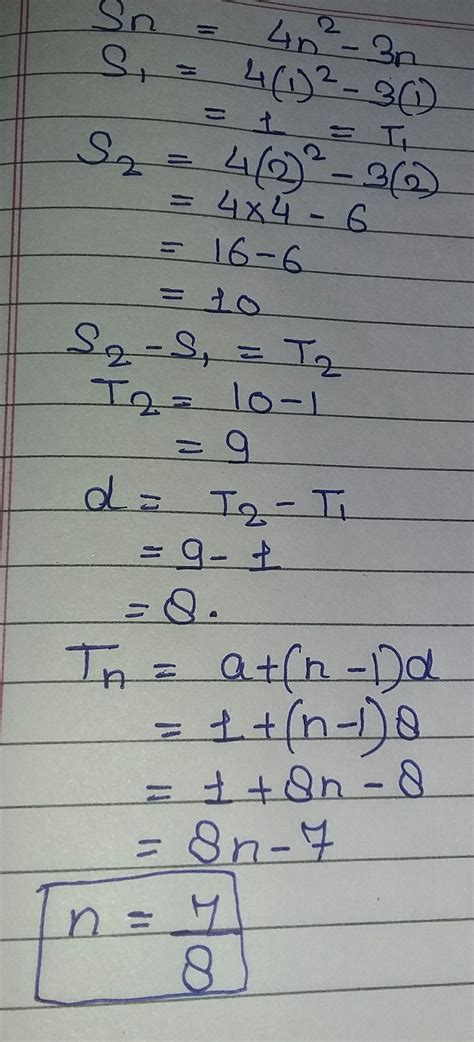 Sn = 4n² - 3n
S₁ = 4(1)² - 3(1)
= 1 = T₁
S₂ = 4(2)² - 3(2)
= 4×4 - 6
= 16 - 6
= 10
S₂ - S₁ = T₂
T₂ = 10 - 1
= 9
d = T₂ - T₁
= 9 - 1
= 8.
Tn = a + (n - 1)d
= 1 + (n - 1)8
= 1 + 8n - 8
= 8n - 7
n = 7/8